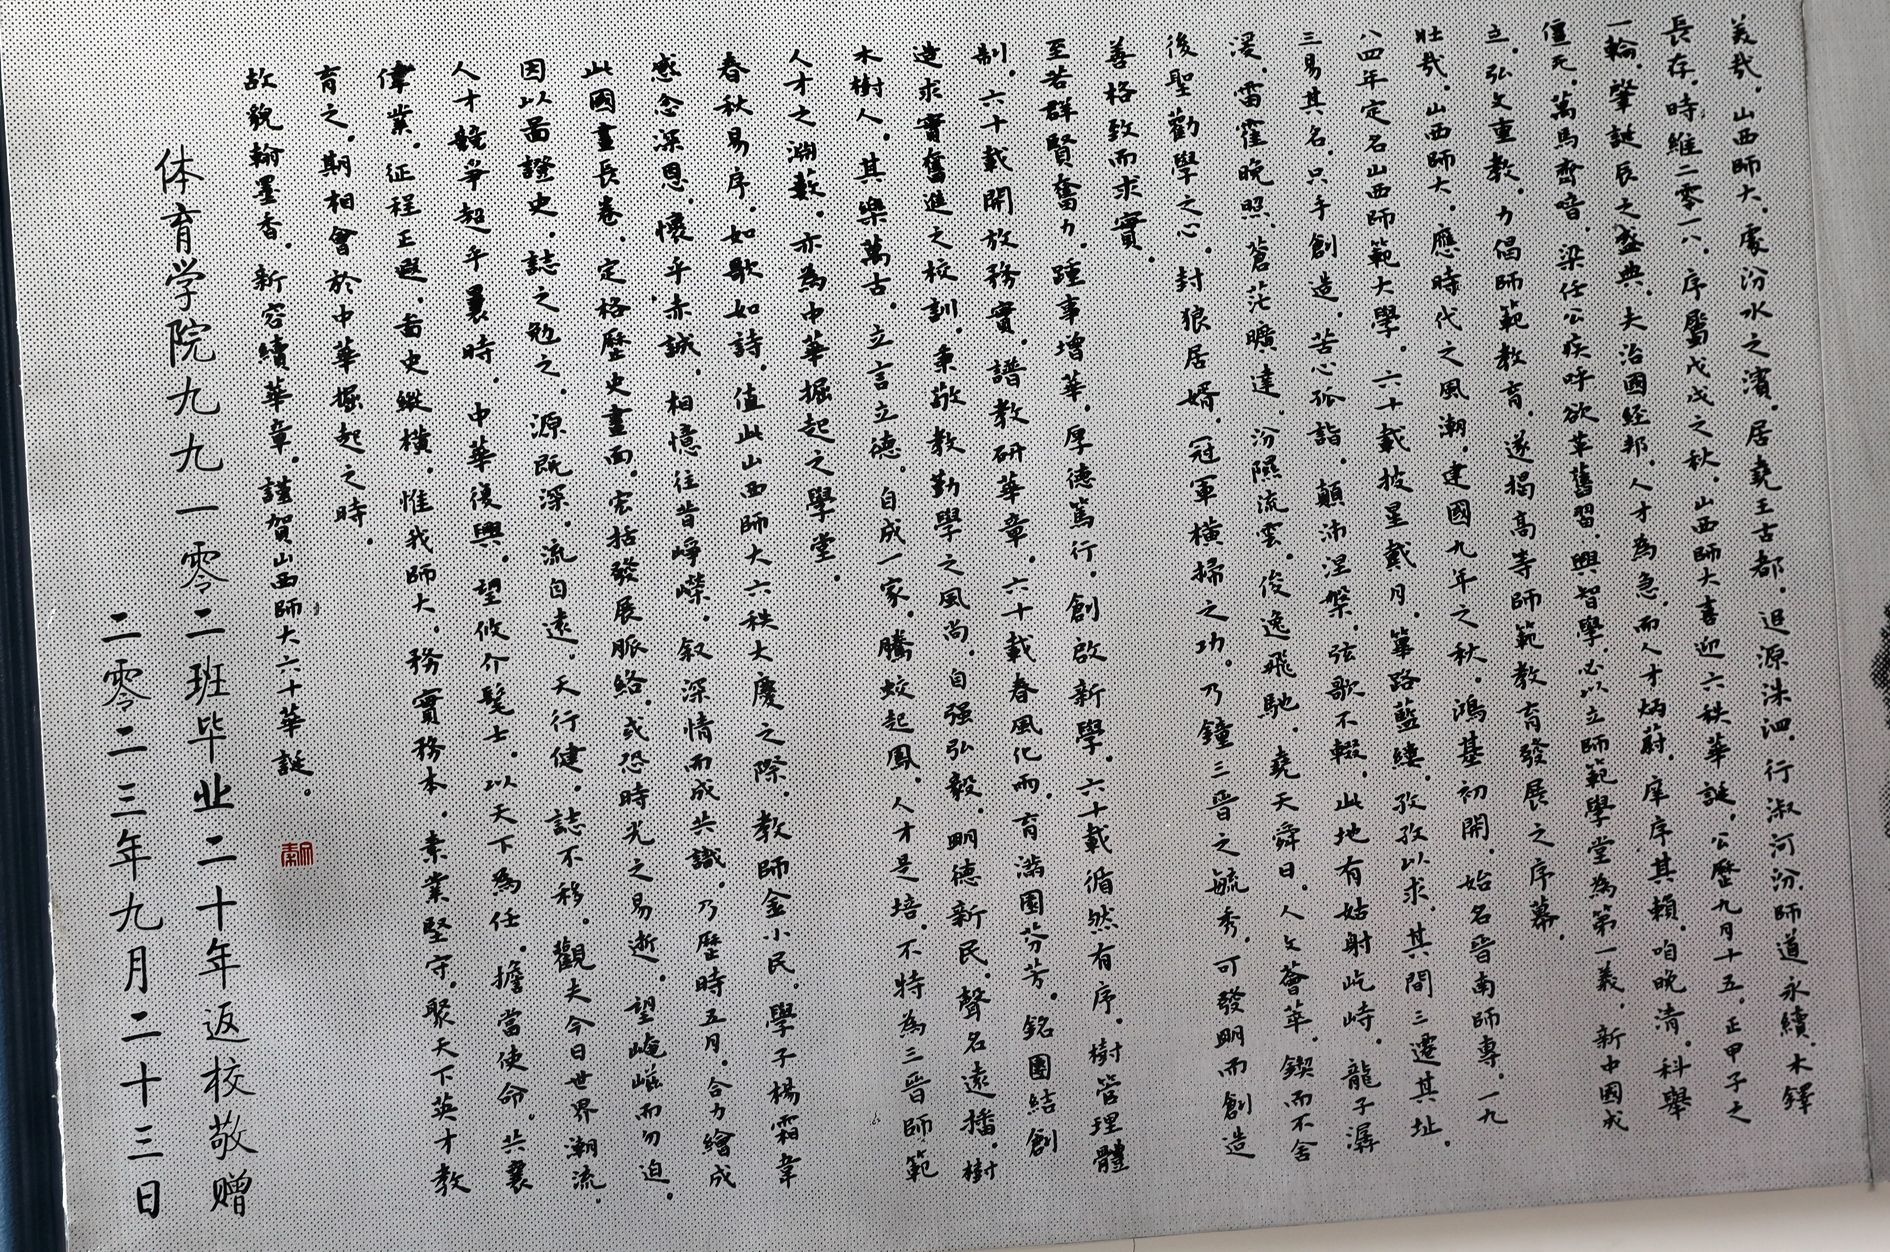 美哉，山西師大，處汾水之濱，居堯王古都，追源洙泗，行淑河汾，師道永續，木鐸
長存，時維二零一八，序屬戊戌之秋，山西師大喜迎六秩華誕，公歷九月十五，正甲子之
一輪，肇誕辰之盛典，夫治國經邦，人才為急，而人才炳蔚，庠序其賴，咱晚清，科舉
僵死，萬馬齊喑，梁任公疾呼欲革舊習，興智學，必以立師範學堂為第一義，新中國成
立，弘文重教，力倡師範教育，遂揭高等師範教育發展之序幕，
壯哉，山西師大，應時代之風潮，建國九年之秋，鴻基初開，始名晉南師專，一九
八四年定名山西師範大學，六十載披星戴月，篳路藍縷，孜孜以求，其間三遷其址，
三易其名，只手創造，苦心孤詣，顛沛涅槃，弦歌不輟，此地有姑射屹峙，龍子潺
湲，雷霍晚照，蒼茫曠達，汾隰流雲，俊逸飛馳，堯天舜日，人文薈萃，鍥而不舍
後聖勸學之心，封狼居婿，冠軍橫掃之功，乃鐘三晉之毓秀，可發明而創造
善格致而求實。
至若群賢奮力，踵事增華，厚德篤行，創啟新學，六十載循然有序，樹管理體
制，六十載開放務實，譜教研華章，六十載春風化雨，育滿園芬芳，銘團結創
造求實奮進之校訓，秉敬教勤學之風尚，自强弘毅，明德新民，聲名遠播，樹
木樹人，其樂萬古，立言立德，自成一家，騰蛟起鳳，人才是培，不特為三晉師範
人才之淵藪，亦為中華掘起之學堂，
春秋易序，如歌如詩，值此山西師大六秩大慶之際，教師金小民，學子楊霜韋
感念深恩，懷乎赤誠，相憶往昔崢嶸，叙深情而成共識，乃歷時五月，合力繪成
此國畫長卷，定格歷史畫面，宏括發展脈絡，或恐時光之易逝，望崦嵫而勿迫，
因以畫證史，誌之勉之，源既深，流自遠，天行健，誌不移，觀夫今日世界潮流，
人才競爭超乎曩時，中華復興，望攸介髦士，以天下為任，擔當使命，共襄
偉業，征程正遐，畫史縱橫，惟我師大，務實務本，素業堅守，聚天下英才教
育之，期相會於中華掘起之時，
故貌翰墨香，新容續華章，謹賀山西師大六十華誕。
体育学院九九一零二班毕业二十年返校敬赠
二零二三年九月二十三日